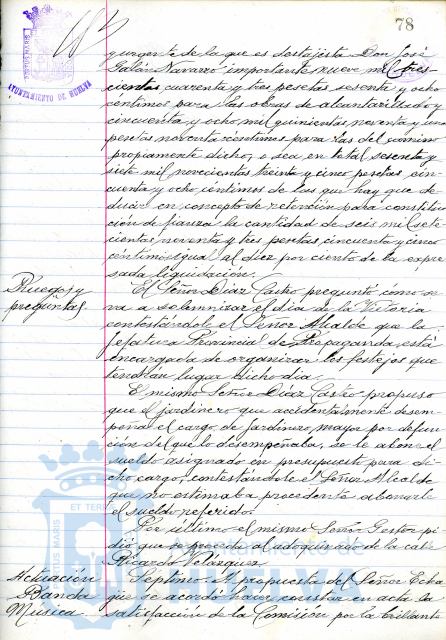 78
AYUNTAMIENTO DE HUELVA
gurgente de la que es destajista Don José
Galán Navarro importante nueve mil tres
cientas cuarenta y tres pesetas sesenta y ocho
céntimos para las obras de alcantarillado y
cincuenta y ocho mil quinientas noventa y una
pesetas noventa céntimos para las del camino
propiamente dicho, o sea en total sesenta y
siete mil novecientas treinta y cinco pesetas cin
cuenta y ocho céntimos de las que hay que de
ducir en concepto de retención para constitu
ción de fianza la cantidad de seis mil sete
cientas noventa y tres pesetas, cincuenta y cinco
céntimos igual al diez por ciento de la expre
sada liquidación.
Ruegos y
preguntas.
El Señor Díaz Castro preguntó como se
va a solemnizar el día de la Victoria
contestándole el Señor Alcalde que la
Jefatura Provincial de Propaganda, está
encargada de organizar los festejos que
tendrán lugar dicho día.
El mismo Señor Díaz Castro propuso
que el jardinero que accidentalmente desem
peña el cargo de jardinero mayor por defun
ción del que lo desempeñaba, se le abone el
sueldo asignado en presupuesto para di
cho cargo, contestándole el Señor Alcalde
que no estimaba procedente abonarle
el sueldo referido.
Por último el mismo Señor Gestor pi
dió que se proceda al adoquinado de la calle
Ricardo Velázquez.
Actuación
Banda
Música
Septimo. A propuesta del Señor Echa
que se acordó hacer constar en acta la
satisfacción de la Comisión por la brillante
PORTUS MARIS ET TERRAE
Ayuntamiento de
HUELVA